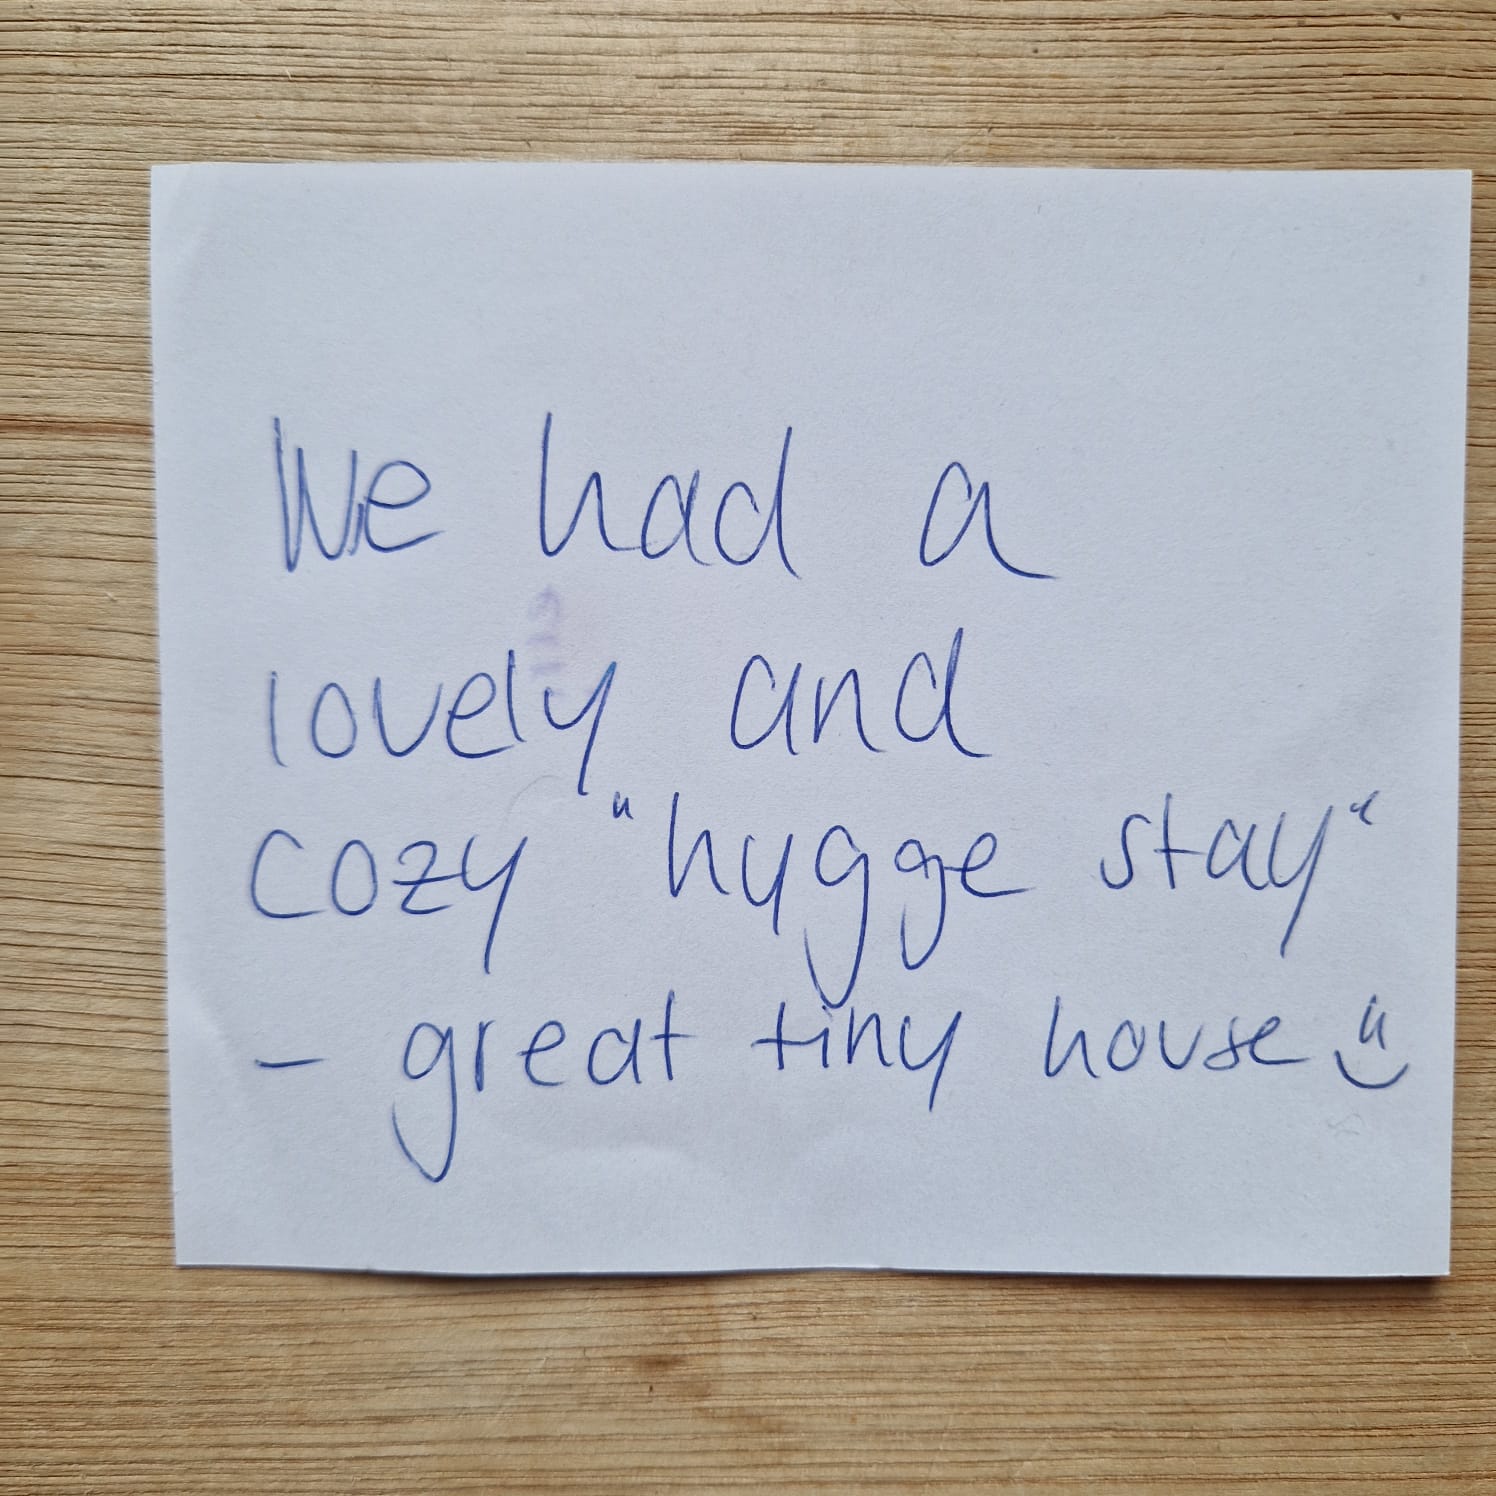 We had a
lovely and
cozy "hygge stay"
- great tiny house ü